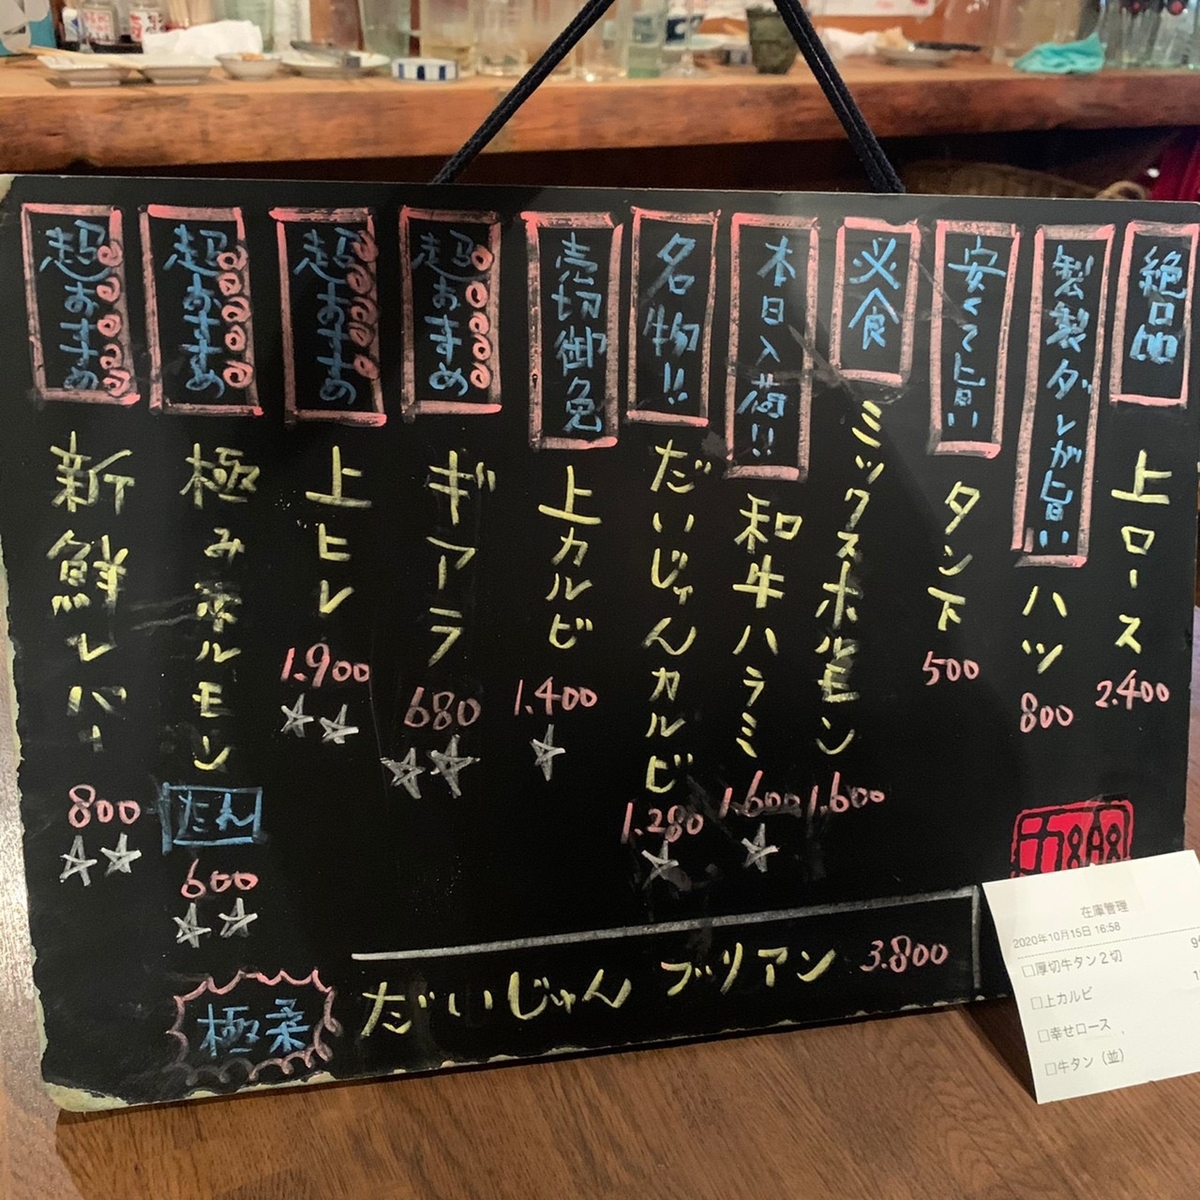 絶品
上ロース
2.400
製製ダレが旨い
ハツ
800
安くて旨い
タン下
500
必食
ミックスホルモン
1.600
本日入荷!!
和牛ハラミ
1.600
☆
名物!!
だいじゅんカルビ
1.280
☆
売切御免
上カルビ
1.400
☆
超おすすめ
ギアラ
680
☆☆
超おすすめ
上ヒレ
1.900
☆☆
超おすすめ
極みホルモン
たれ
600
☆☆
超おすすめ
新鮮レバー
800
☆☆
極柔
だいじゅん ブリアン 3.800
在庫管理
2020年10月15日 16:58
□厚切牛タン2切
□上カルビ
□幸せロース
□牛タン（並）